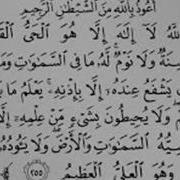 أَعُوذُ بِاللَّهِ مِنَ الشَّيْطَٰنِ الرَّجِيمِ
ٱللَّهُ لَآ إِلَٰهَ إِلَّا هُوَ ٱلْحَىُّ
سِنَةٌ وَلَا نَوْمٌ لَّهُۥ مَا فِى ٱلسَّمَٰوَٰتِ وَمَا
يَشْفَعُ عِندَهُۥٓ إِلَّا بِإِذْنِهِۦ يَعْلَمُ مَا
وَلَا يُحِيطُونَ بِشَىْءٍ مِّنْ عِلْمِهِۦٓ إِلَّا
ٱلسَّمَٰوَٰتِ وَٱلْأَرْضَ وَلَا يَـُٔودُهُۥ
وَهُوَ ٱلْعَلِىُّ ٱلْعَظِيمُ ٢٥٥